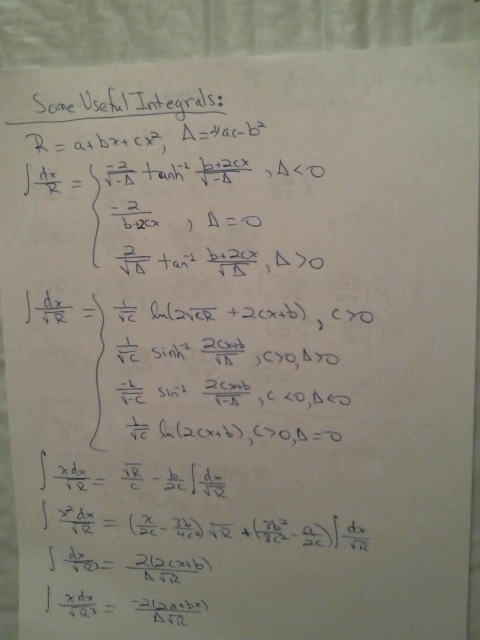 Some Useful Integrals:
R = a+bx+cx², Δ=4ac-b²
∫ dx/R = { -2/√-Δ tanh⁻¹ (b+2cx)/√-Δ , Δ<0
-2/(b+2cx) , Δ=0
2/√Δ tan⁻¹ (b+2cx)/√Δ , Δ>0
∫ dx/√R = { 1/√c ln(2√cR + 2cx+b) , c>0
1/√c sinh⁻¹ (2cx+b)/√Δ , c>0, Δ>0
-1/√-c sin⁻¹ (2cx+b)/√-Δ , c<0, Δ<0
1/√c ln(2cx+b), c>0, Δ=0
∫ xdx/√R = √R/c - b/2c ∫ dx/√R
∫ x²dx/√R = (x/2c - 3b/4c²) √R + (3b²/8c² - a/2c) ∫ dx/√R
∫ dx/√R³ = 2(2cx+b)/Δ√R
∫ xdx/√R³ = -2(2a+bx)/Δ√R